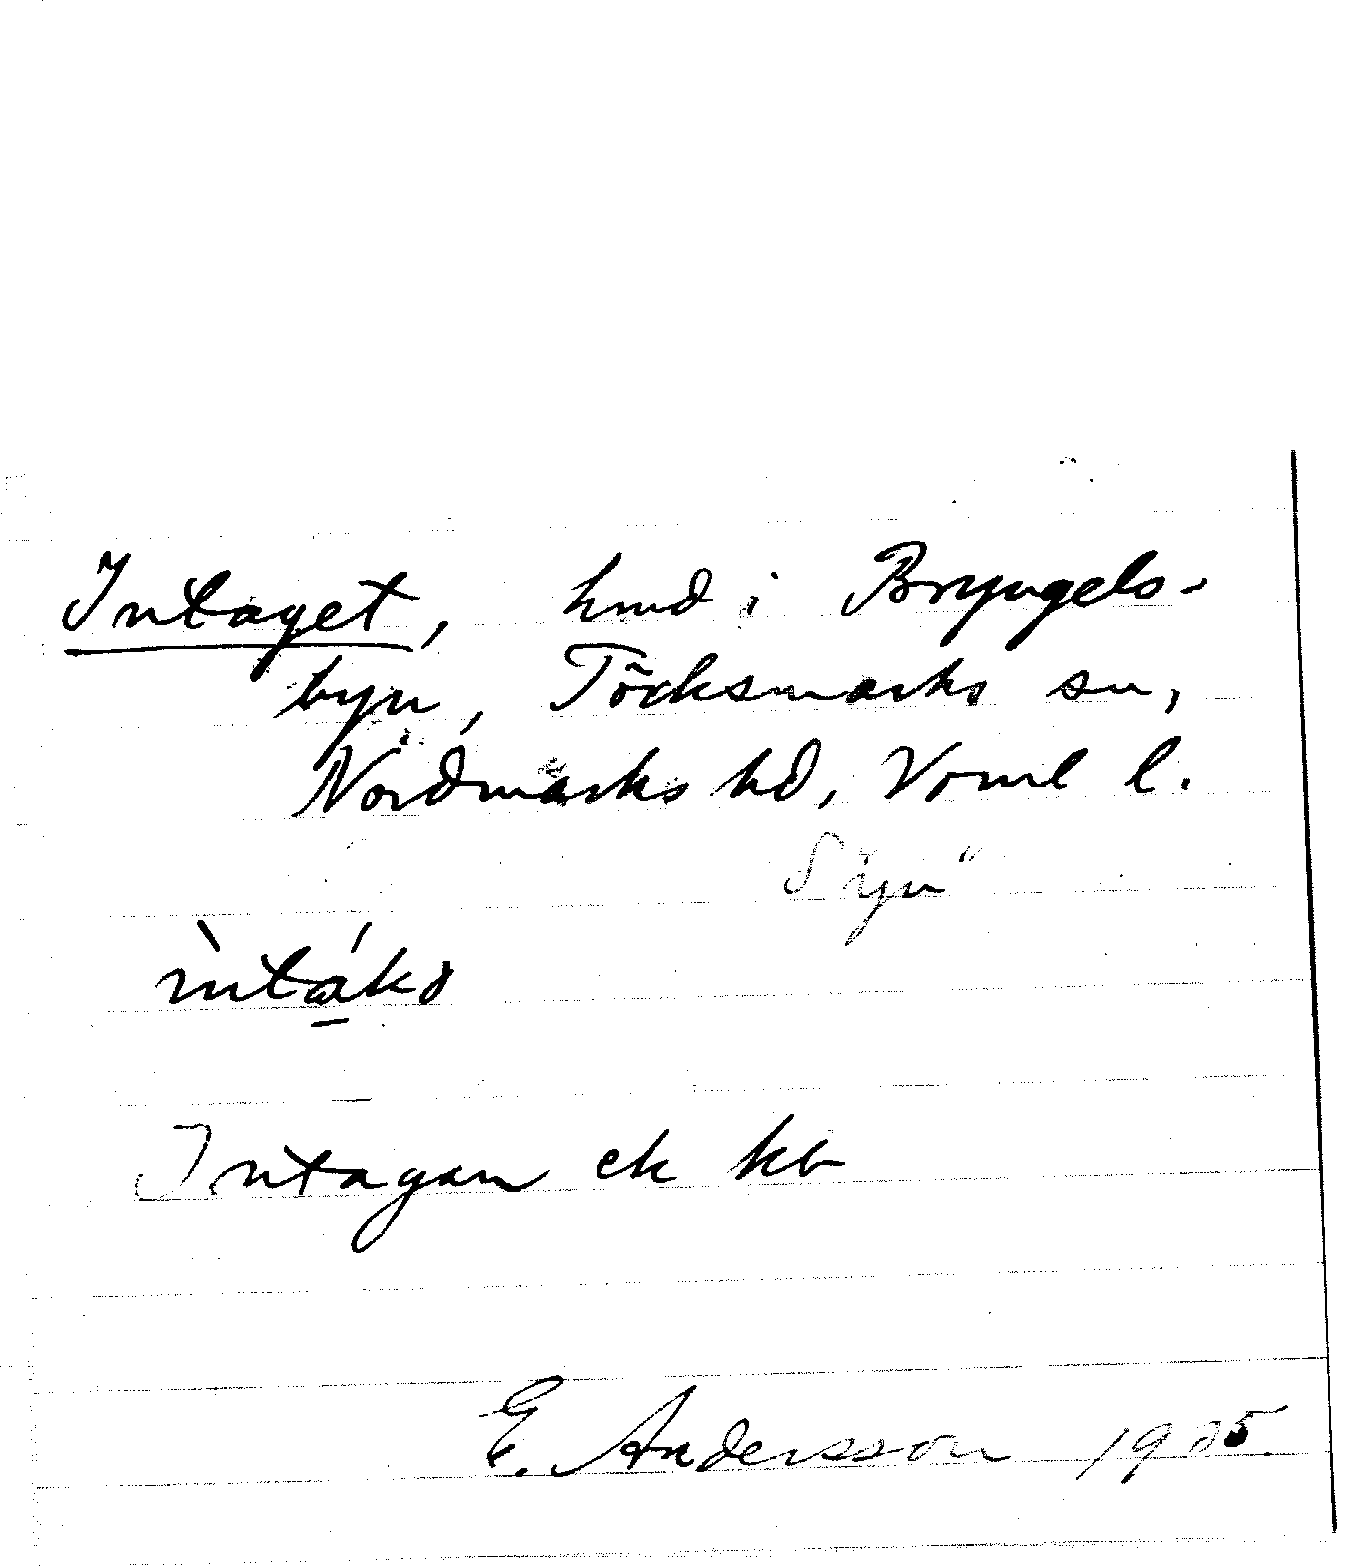 Intaget, hmd i Bryngels-
byn, Töcksmarks sn,
Nordmarks hd, Vrml l.
ìntákə
Intagan ek kb
E. Andersson 1905.